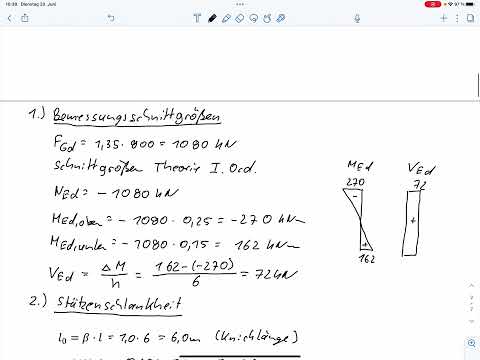 10:39 Dienstag 20. Juni
97 %
1.) Bemessungsschnittgrößen
FGd = 1,35 · 800 = 1080 kN
Schnittgrößen Theorie I. Ord.
NEd = - 1080 kN
MEd,oben = - 1080 · 0,25 = -270 kNm
MEd,unten = - 1080 · 0,15 = 162 kNm
VEd = ΔM / h = 162-(-270) / 6 = 72 kN
MEd
270
-
+
162
VEd
72
+
2.) Stützenschlankheit
l0 = β · l = 1,0 · 6 = 6,0m (Knicklänge)